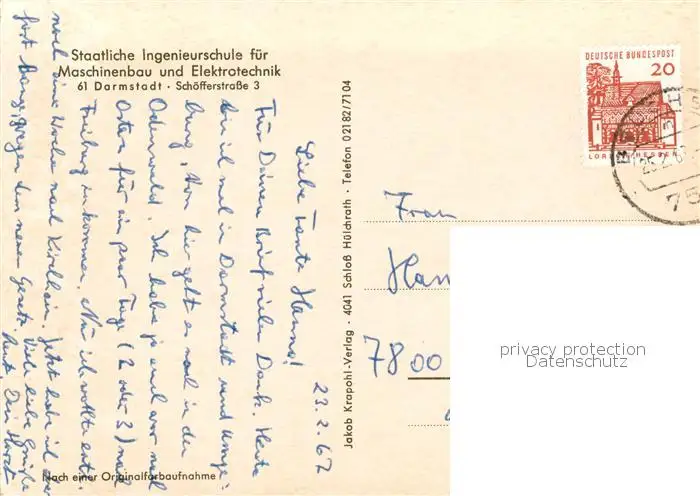 Staatliche Ingenieurschule für
Maschinenbau und Elektrotechnik
61 Darmstadt · Schöfferstraße 3
23.2.67
Liebe Tante Hanna!
Für Deinen Brief vielen Dank. Heute
bin ich mal in Darmstadt und Umge-
bung. Von hier geht es noch in den
Odenwald. Ich habe ja auch vor nach
Ostern für ein paar Tage (2 oder 3) nach
Freiburg zu kommen. Nur ich wollte erst
noch eine Woche nach Kirchhain. Jetzt habe ich
fort wegen dem neuen Gesetz. Viele liebe Grüße
Dein Horst
Nach einer Originalfarbaufnahme
Jakob Krapohl-Verlag · 4041 Schloß Hülchrath · Telefon 02182/7104
DEUTSCHE BUNDESPOST
20
LORSCH HESSEN
75
Frau
Han
7800
privacy protection
Datenschutz